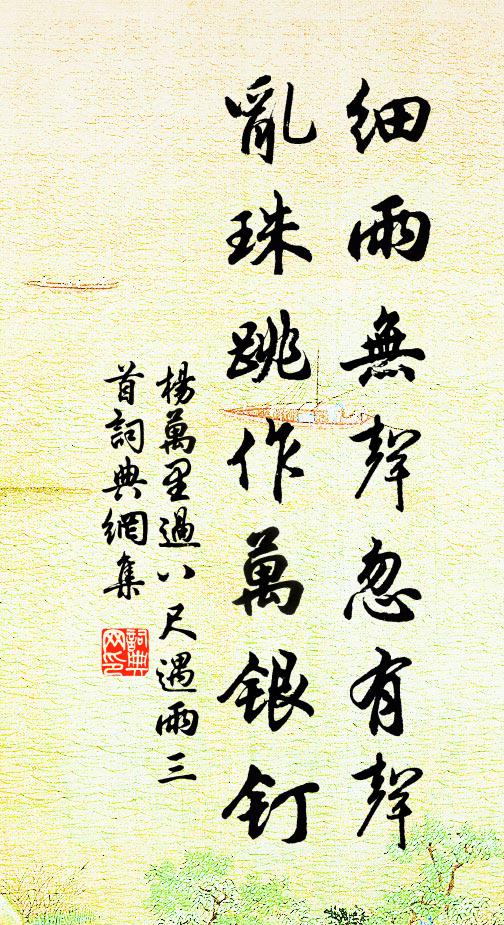 細雨無聲忽有聲
亂珠跳作萬銀釘
楊萬里過八尺遇雨三
首詞典網集
詞典
网印